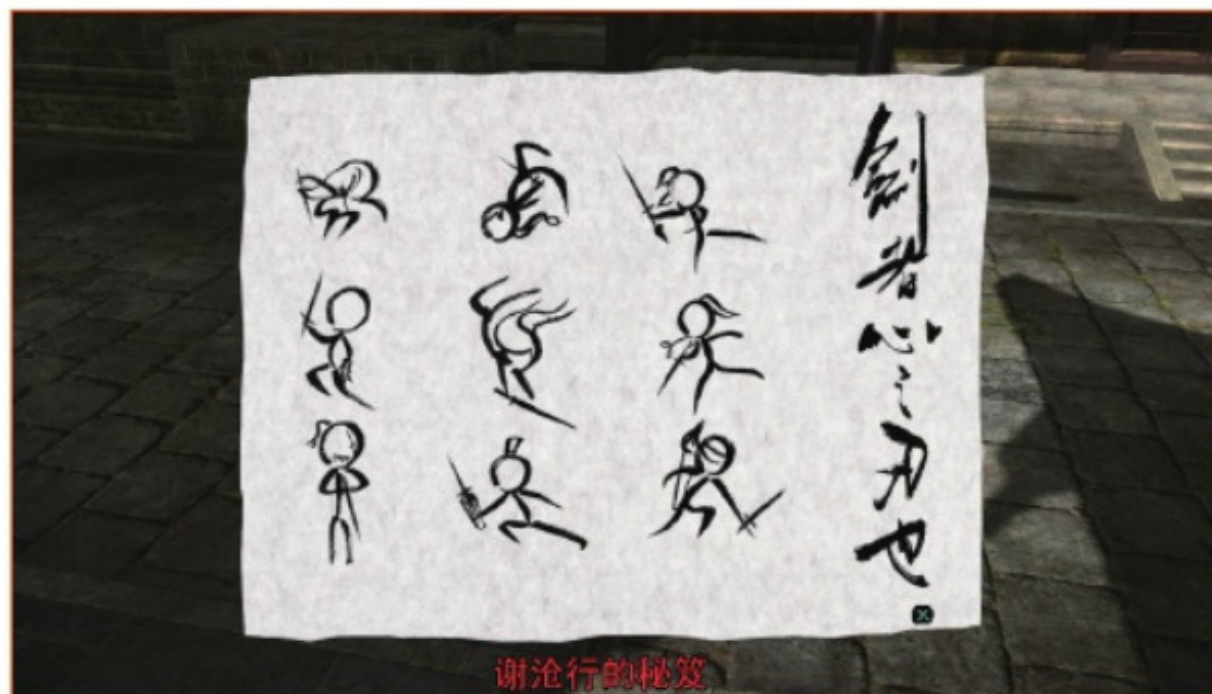 剑者心之刃也
谢沧行的秘笈